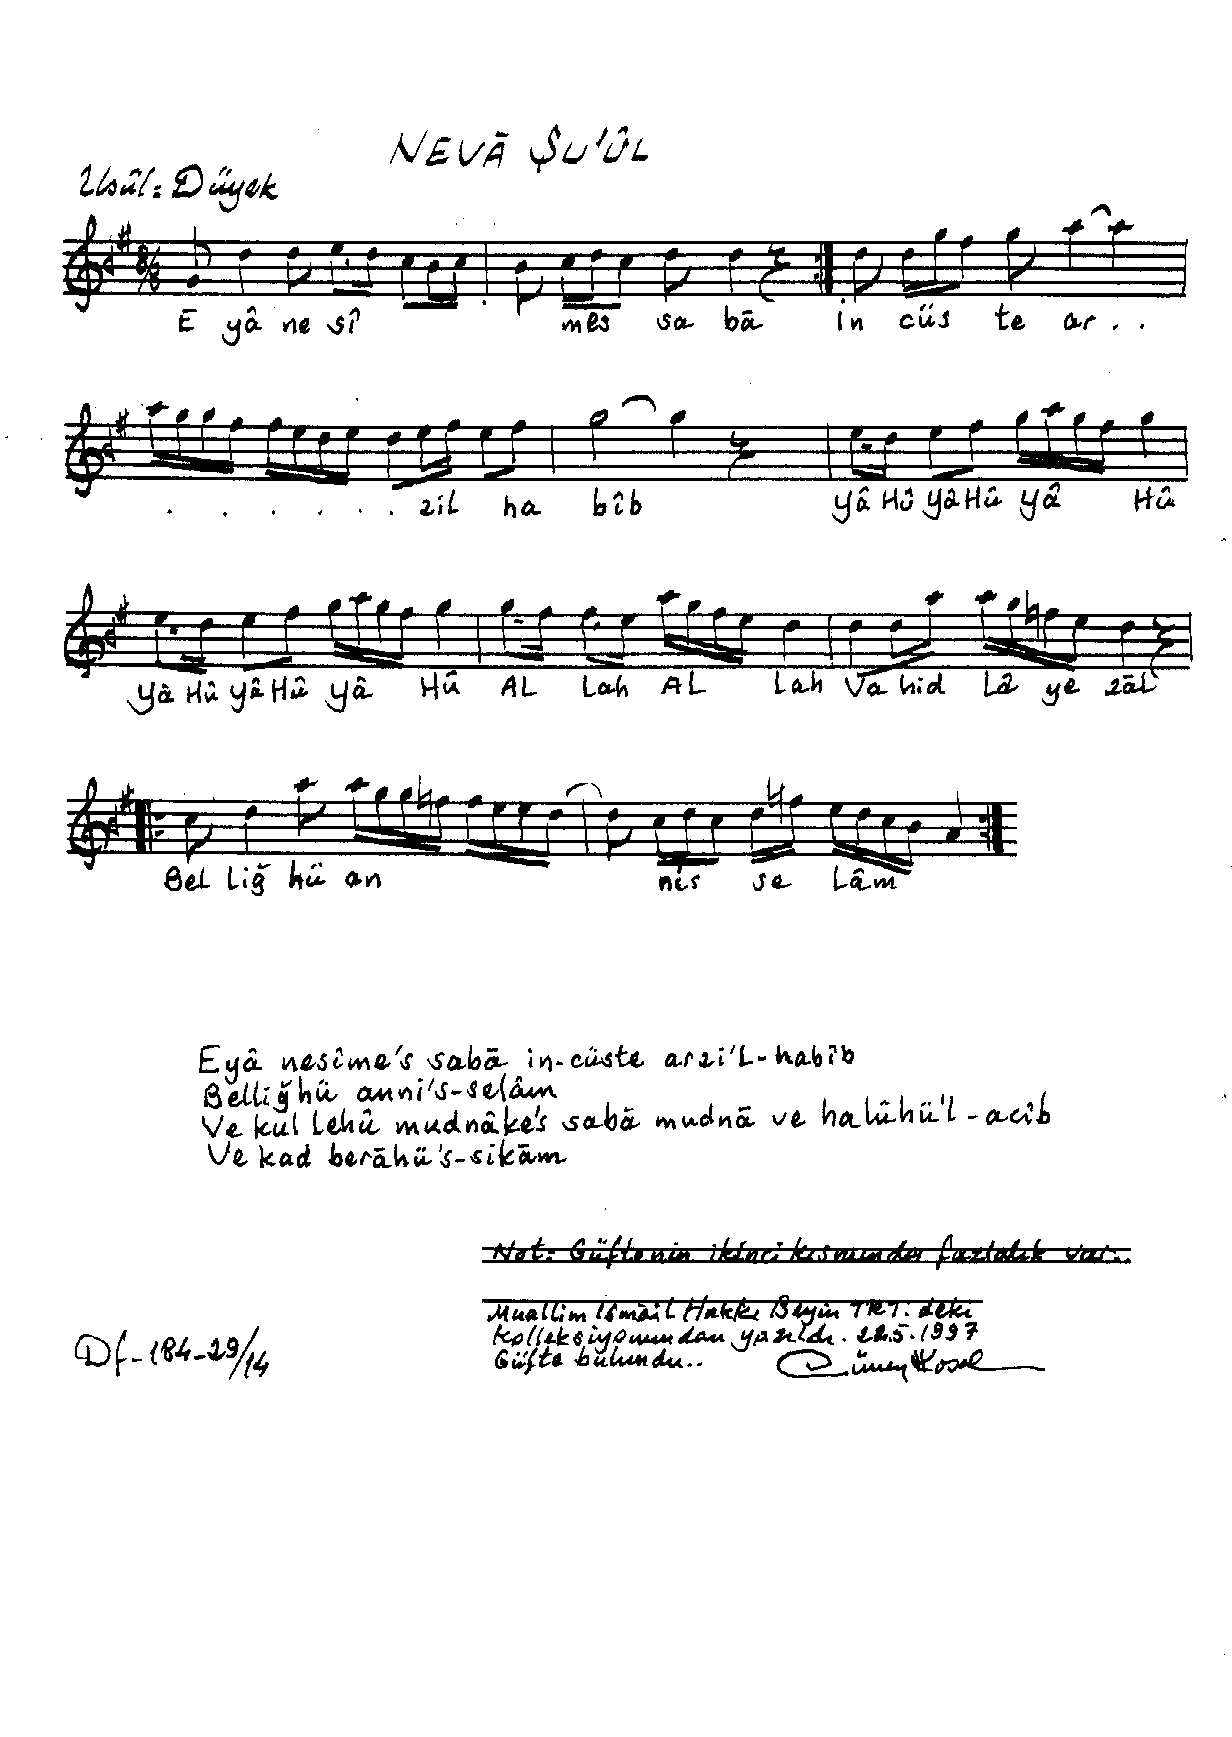 NEVĀ ŞU'ÛL
Usûl: Düyek
8/8
E yâ ne sî mes sa bā in cüs te ar . .
. . . . . . zil ha bîb Yâ Hû Yâ Hû Yâ Hû
Yâ Hû Yâ Hû Yâ Hû AL Lah AL Lah Va hid Lâ ye zâl
Bel Liğ hü an nis se Lâm
Eyâ nesîme's sabā in-cüste arzi'l-habîb
Belliğhü anni's-selâm
Ve kul lehû mudnâke's sabā mudnā ve halûhü'l-acîb
Ve kad berāhü's-sikām
Not: Güftenin ikinci kısmında fazlalık var..
Muallim İsmâil Hakkı Beyin TRT. deki
Kolleksiyonundan yazıldı. 22.5.1997
Güfte bulundu..
Df-184-29/14